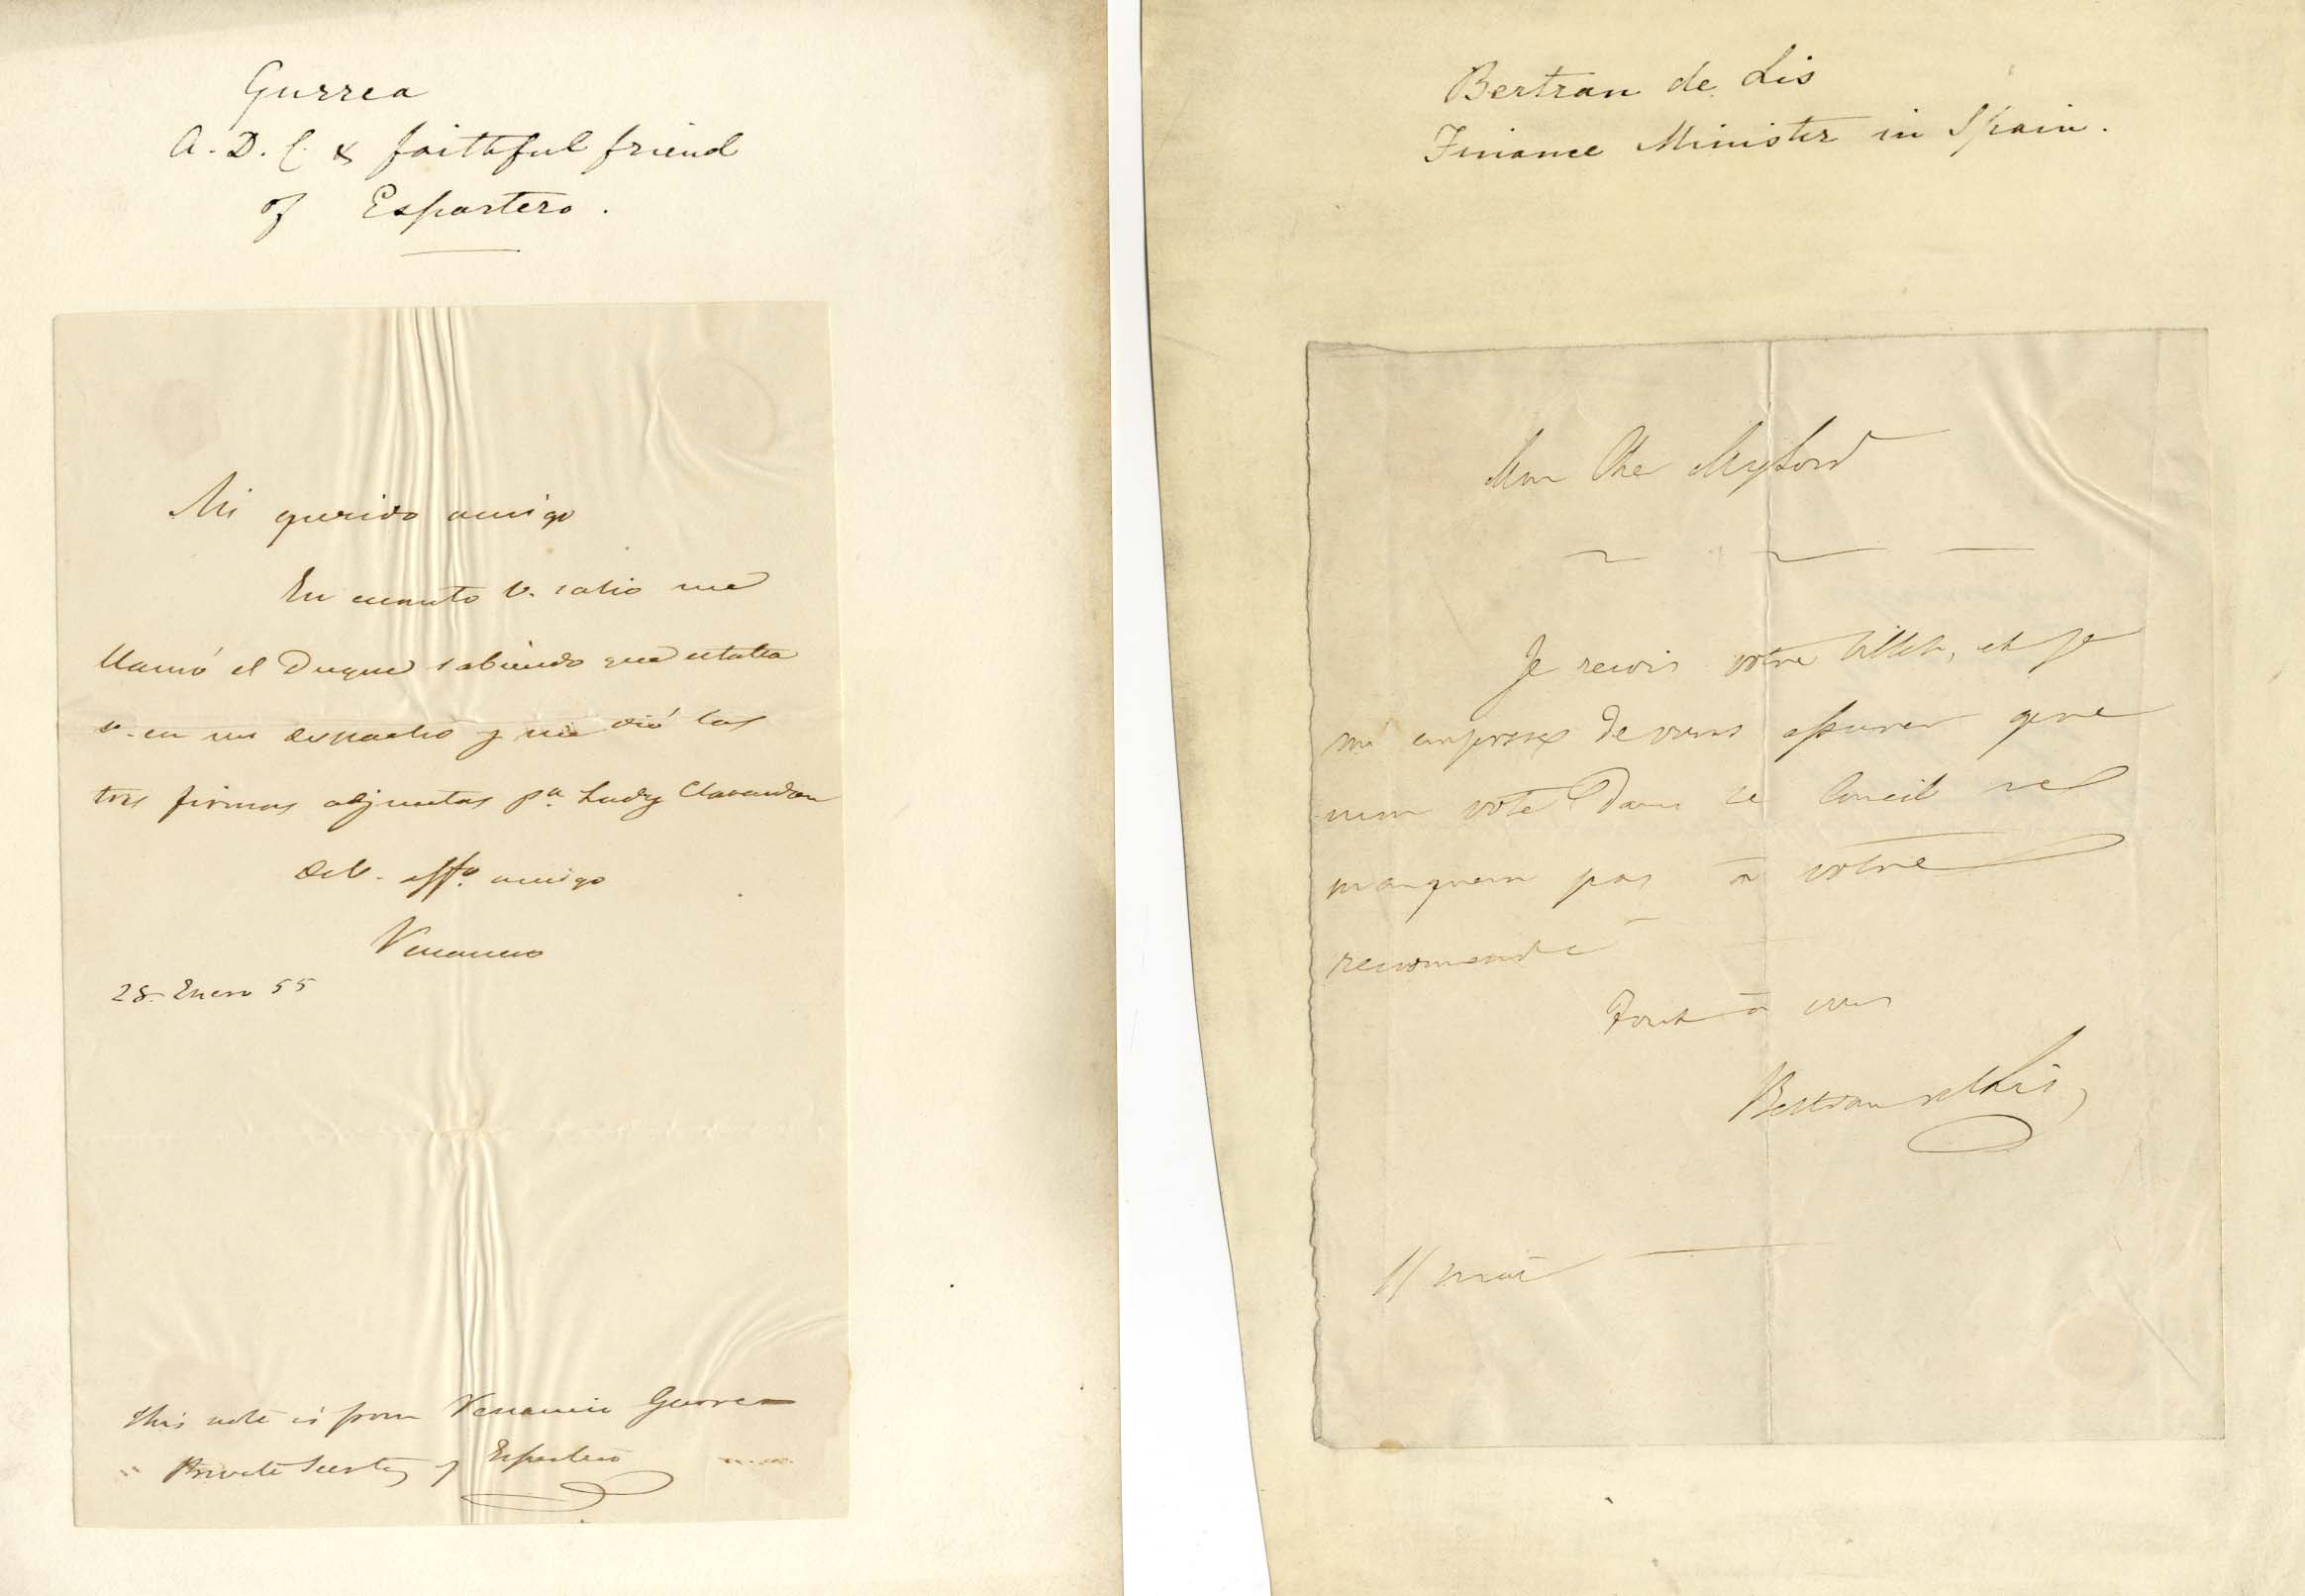 Gurrea
A.D.C. & faithful friend
of Espartero.
Mi querido amigo
En cuanto V. salio me
llamó el Duque sabiendo que estaba
V. en mi despacho y me dió las
tres firmas adjuntas pa. Lady Clarendon
de V. affo. amigo
Venancio
28 Enero 55
This note is from Venancio Gurrea
Private Secrety of Espartero
Bertran de Lis
Finance Minister in Spain.
Mon Che Mylord
Je recois votre billet, et je
m'empresse de vous assurer que
mon vote dans le Conseil ne
manquera pas à votre
recomandé
Tout à vous
Bertran de Lis
11 mai